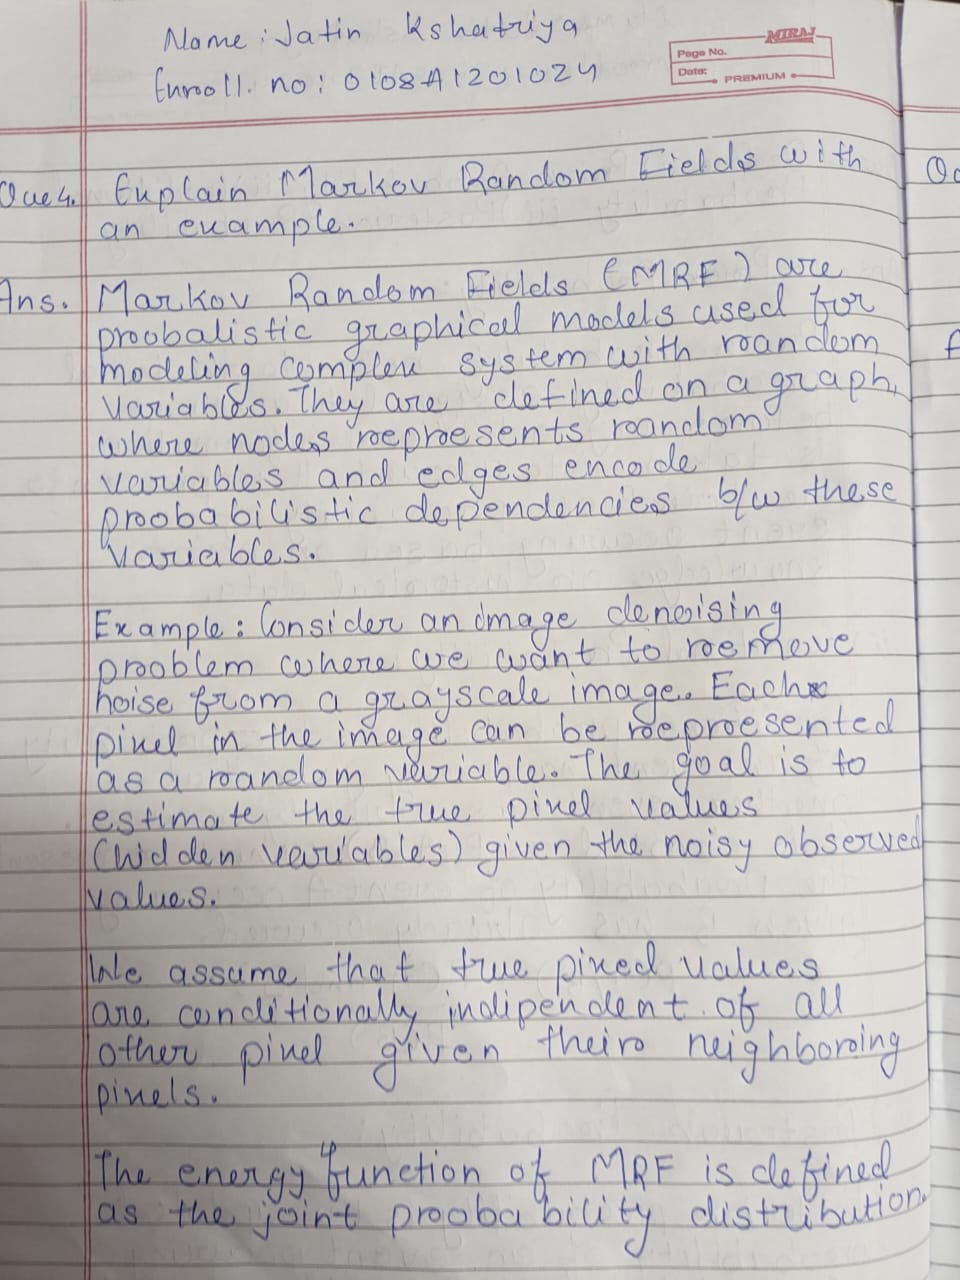 Name: Jatin Kshatriya
Enroll. no: 0108AI201024
MIRAJ
Page No.
Date:
PREMIUM
Que4. Explain Markov Random Fields with
an example.
Ans. Markov Random Fields (MRF) are
probalistic graphical models used for
modeling complex system with random
variables. They are defined on a graph,
where nodes represents random
variables and edges encode
probabilistic dependencies b/w these
variables.
Example: Consider an image denoising
problem where we want to remove
noise from a grayscale image. Each
pixel in the image can be represented
as a random variable. The goal is to
estimate the true pixel values
(hidden variables) given the noisy observed
values.
We assume that true pixed values
are conditionally indipendent of all
other pixel given their neighboring
pixels.
The energy function of MRF is defined
as the joint probability distribution.